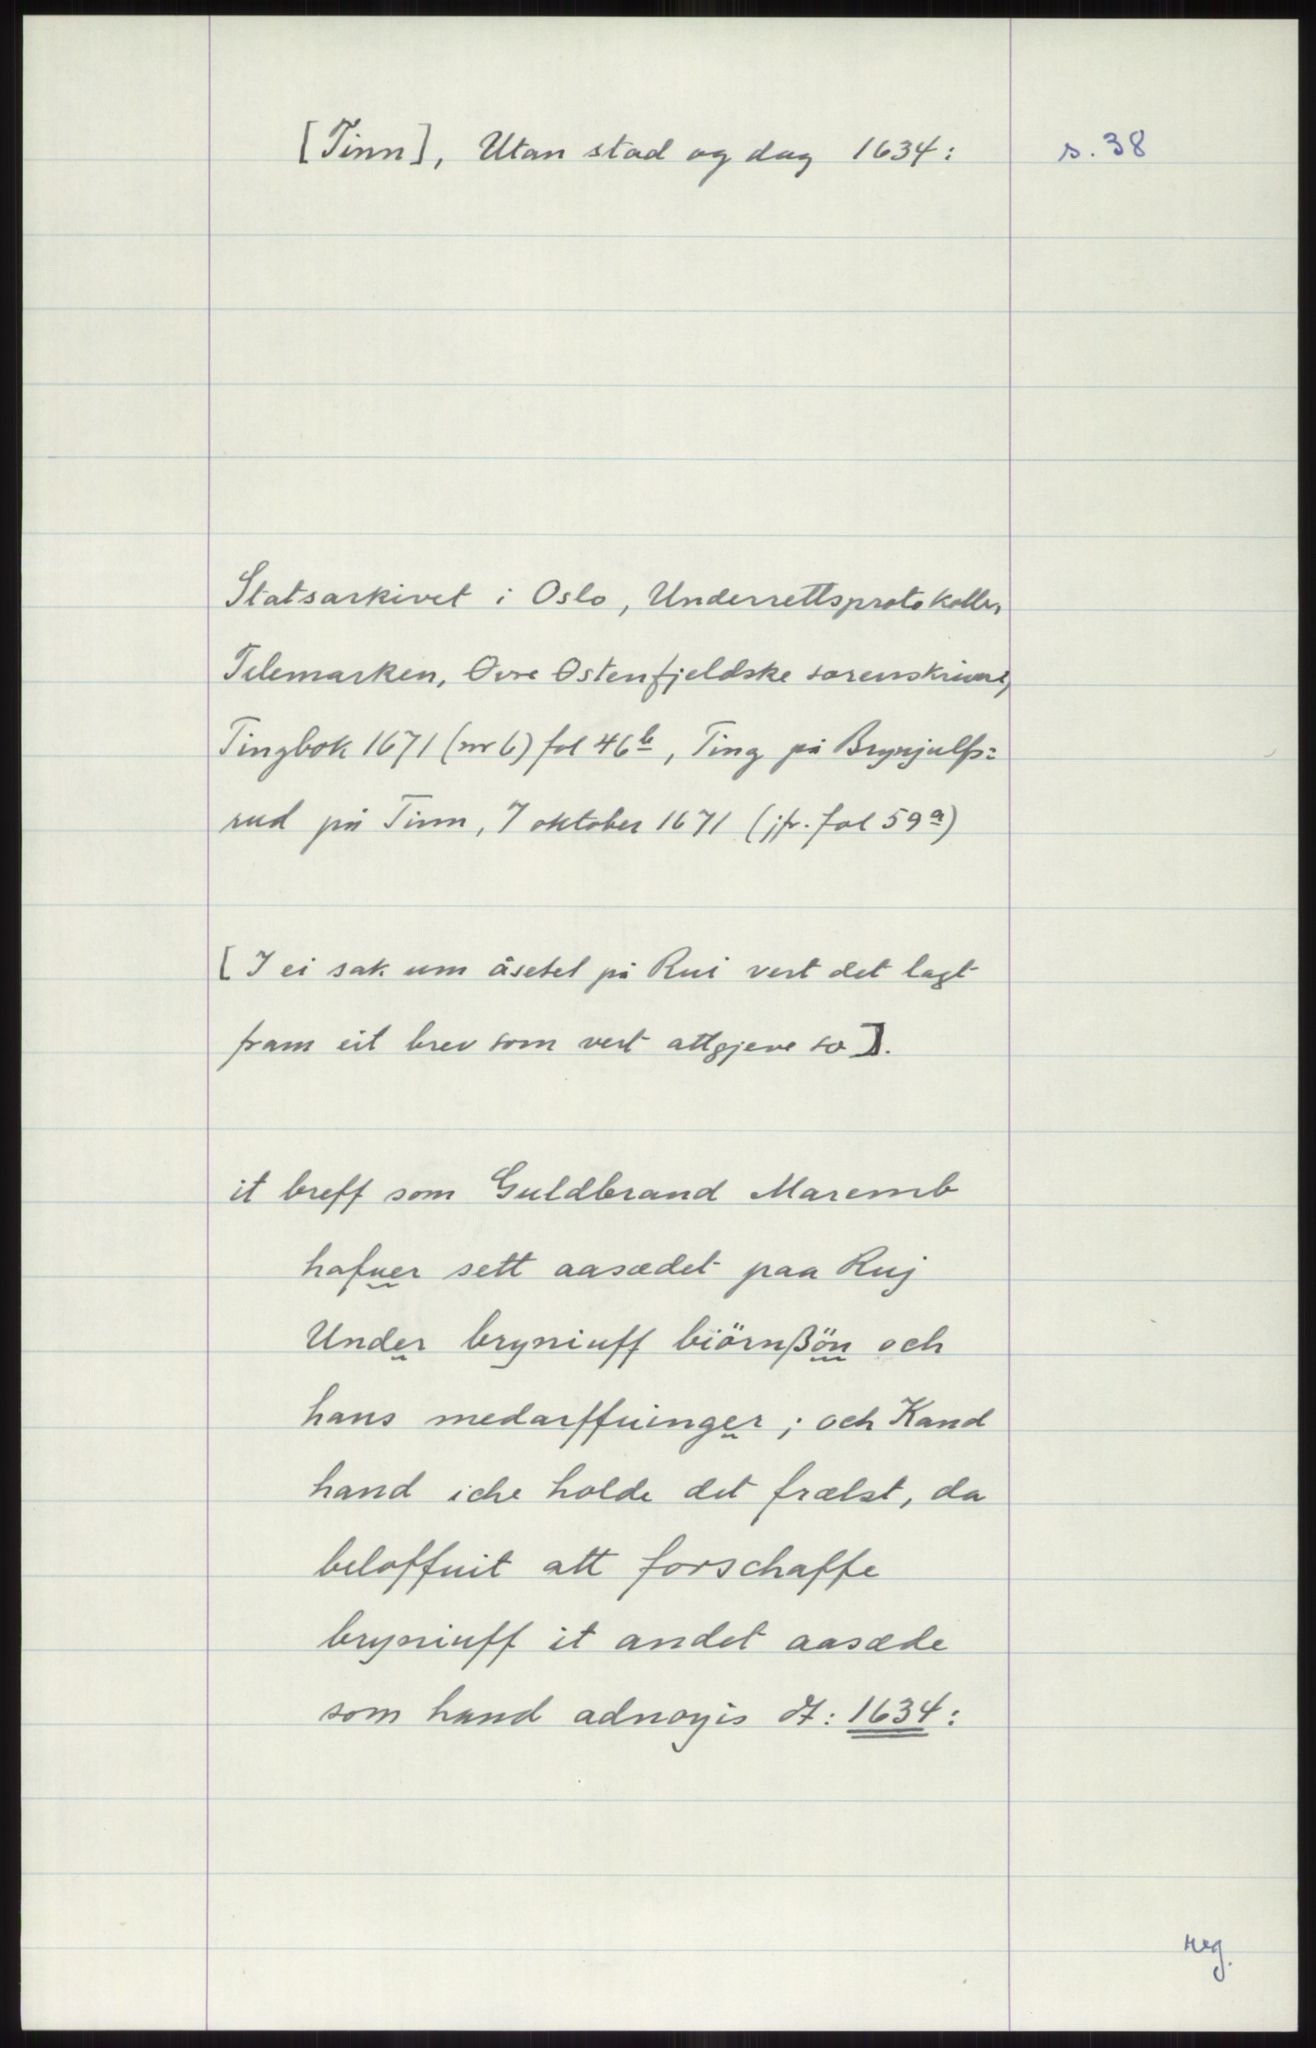 [Tinn], Utan stad og dag 1634: s. 38
Statsarkivet i Oslo, Underrettsprotokoller,
Telemarken, Øvre Østenfjeldske sorenskriveri,
Tingbok 1671 (nr 6) fol 46b, Ting på Brynjulfs=
rud på Tinn, 7 oktober 1671 (jfr. fol 59a)
[I ei sak um åsetet på Rui vert det lagt
fram eit brev som vert attgjeve so].
it breff som Guldbrand Maremb
hafuer sett aasædet paa Ruj
Under bryniuff biörnßön och
hans medarffuinger; och Kand
hand iche holde det frælst, da
beloffuit att forschaffe
bryniuff it andet aasæde
som hand adnøyis
1634:
reg.